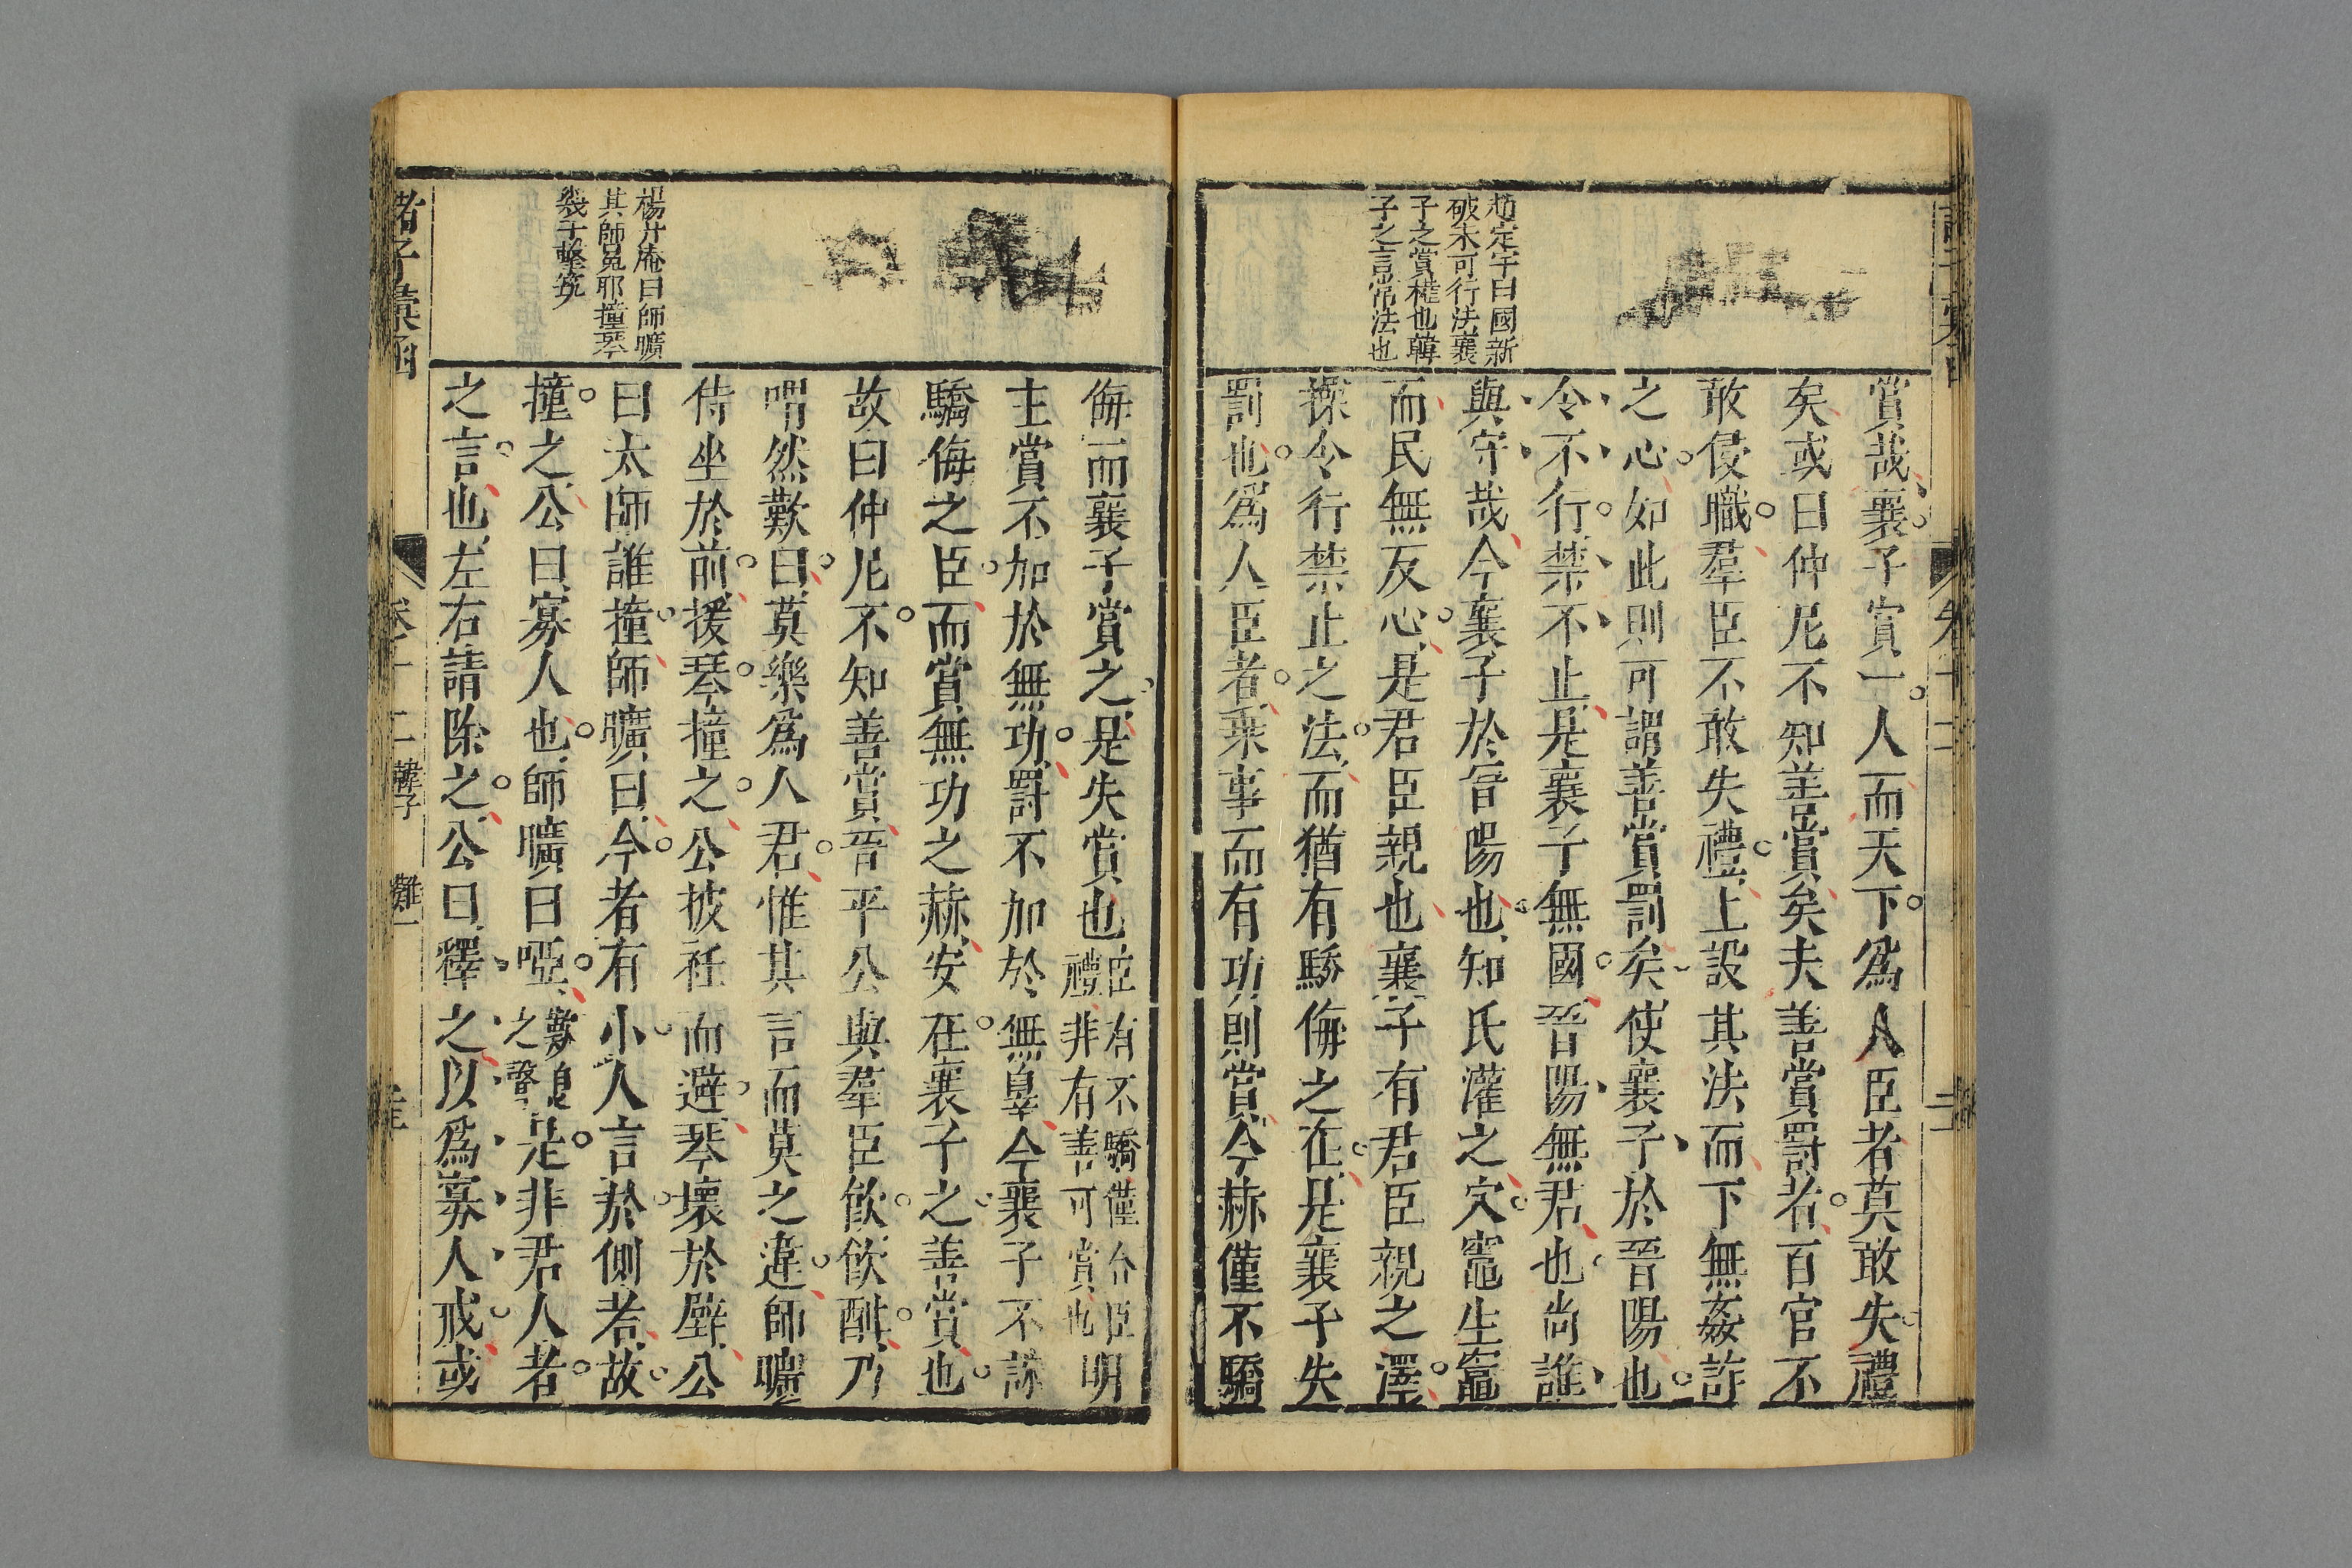 趙定宇曰國新
破未可行法襄
子之賞權也韓
子之言常法也
賞哉襄子賞一人而天下爲人臣者莫敢失禮
矣或曰仲尼不知善賞矣夫善賞罰者百官不
敢侵職羣臣不敢失禮上設其法而下無姦詐
之心如此則可謂善賞罰矣使襄子於晉陽也
令不行禁不止是襄子無國晉陽無君也尚誰
與守哉今襄子於晉陽也知氏灌之穴竈生鼃
而民無反心是君臣親也襄子有君臣親之澤
操令行禁止之法而猶有驕侮之在是襄子失
罰也爲人臣者乗事而有功則賞今赫僅不驕
楊升庵曰師曠
其師冕耶撞琴
幾于擊筑
侮而襄子賞之是失賞也臣有不驕僅合臣
禮非有善可賞也明
主賞不加於無功罰不加於無辠今襄子不誅
驕侮之臣而賞無功之赫安在襄子之善賞也
故曰仲尼不知善賞晉平公與羣臣飲飲酣乃
喟然歎曰莫樂爲人君惟其言而莫之違師曠
侍坐於前援琴撞之公披衽而避琴壞於壁公
曰太師誰撞師曠曰今者有小人言於側者故
撞之公曰寡人也師曠曰啞
之聲是非君人者
之言也左右請除之公曰釋之以爲寡人戒或
諸子彙函
卷十二
韓子
難一